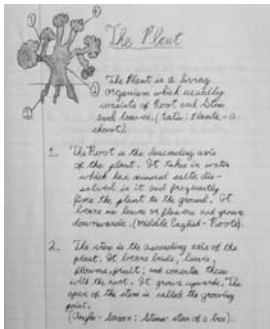 The Plant
The Plant is a living
organism which usually
consists of Root and Stem
and leaves. (Latin: Planta - a
shoot)
1. The Root is the descending axis
of the plant. It takes in water
which has mineral salts dis-
solved in it and frequently
fixes the plant to the ground. It
bears no leaves or flowers and grows
downwards. (Middle English - Roote).
2. The stem is the ascending axis of the
plant. It bears buds, leaves,
flowers, fruit; and connects these
with the root. It grows upwards. The
apex of the stem is called the growing
point.
(Anglo-Saxon: Stemn: stem of a tree).